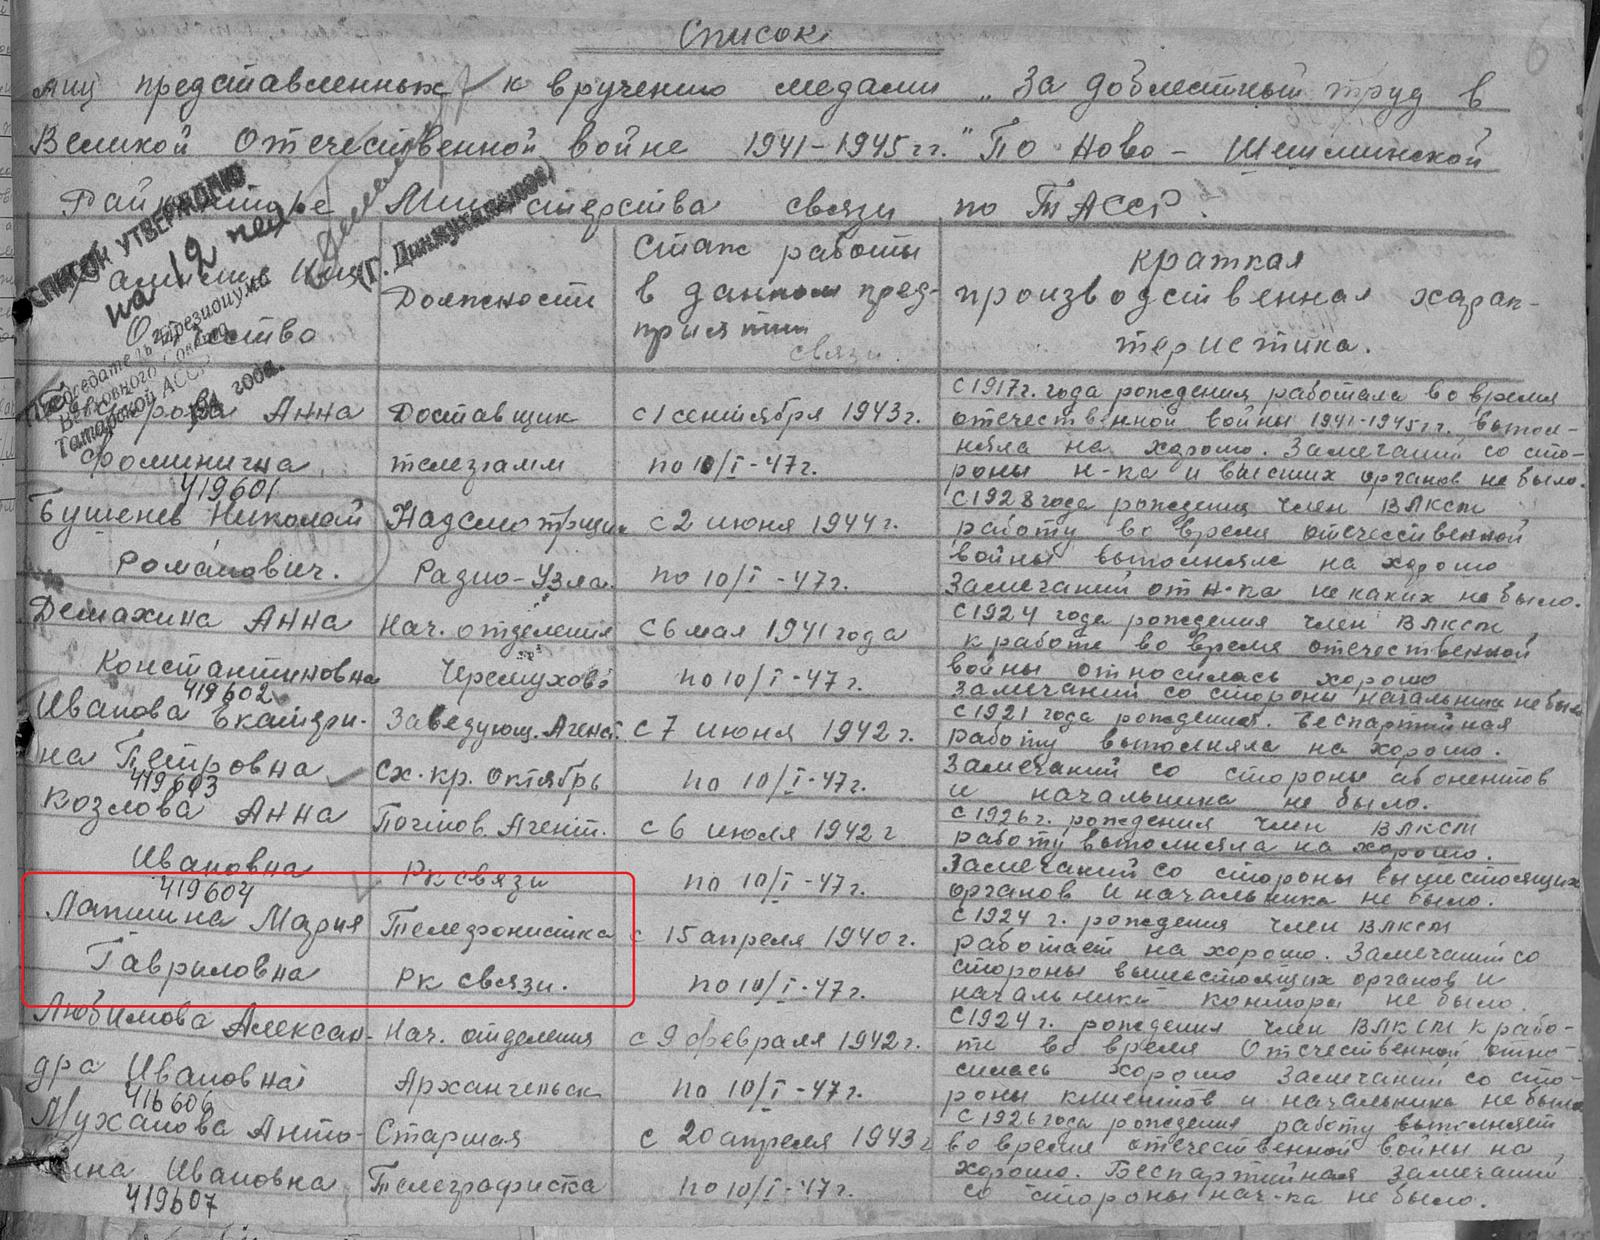 Список
лиц представленных к вручению медали „За доблестный труд в
Великой Отечественной войне 1941-1945 гг." По Ново-Шешминской
Райконторе Министерства связи по ТАССР.
СПИСОК УТВЕРЖДАЮ
на 12 чел
Председатель Президиума
Верховного Совета
Татарской АССР
194 года.
(Г. Динмухаметов)
Фамилия Имя
Отчество
Должности
Стаж работы
в данном пред-
приятии
связи.
Краткая
производственная харак-
теристика.
Анна
Фоминична
Доставщик
телеграмм
с 1 сентября 1943 г.
по 10/I-47 г.
с 1917 г. года рождения работала во время
отечественной войны 1941-1945 г. выпол-
няла на хорошо. Замечаний со сто-
роны н-ка и высших органов не было.
419601
Бушенев Николай
Романович.
Надсмотрщик
Радио-Узла.
с 2 июня 1944 г.
по 10/I-47 г.
с 1928 года рождения член ВЛКСМ
работу во время отечественной
войны выполняла на хорошо
Замечаний от н-ка некаких не было.
Демахина Анна
Константиновна
Нач. отделения
Черемухово
с 6 мая 1941 года
по 10/I-47 г.
с 1924 года рождения член ВЛКСМ
к работе во время отечественной
войны относилась хорошо
Замечаний со стороны начальника не было
419602
Иванова Екатери-
на Петровна
Заведующ. Агенст.
сх. кр. октябрь
с 7 июня 1942 г.
по 10/I-47 г.
с 1921 года рождения. Беспартийная
работу выполняла на хорошо.
Замечаний со стороны абонентов
и начальника не было.
419603
Козлова Анна
Ивановна
Почтов. Агент.
Рк связи
с 6 июля 1942 г
по 10/I-47 г.
с 1926 г. рождения член ВЛКСМ
работу выполняла на хорошо.
Замечаний со стороны вышестоящих
органов и начальника не было.
419604
Лапшина Мария
Гавриловна
Телефонистка
Рк связи.
с 15 апреля 1940 г.
по 10/I-47 г.
с 1924 г. рождения член ВЛКСМ
работает на хорошо. Замечаний со
стороны вышестоящих органов и
начальника конторы не было.
Любимова Алексан-
дра Ивановна
Нач. отделения
Архангельск
с 9 февраля 1942 г.
по 10/I-47 г.
с 1924 г. рождения член ВЛКСМ к рабо-
те во время Отечественной отно-
силась хорошо замечаний со сто-
роны клиентов и начальника не было
416606
Муханова Анто-
нина Ивановна
Старшая
Телеграфистка
с 20 апреля 1943 г
по 10/I-47 г.
с 1926 года рождения работу выполняет
во время отечественной войны на
хорошо. Беспартийная замечаний
со стороны нач-ка не было.
419607
6